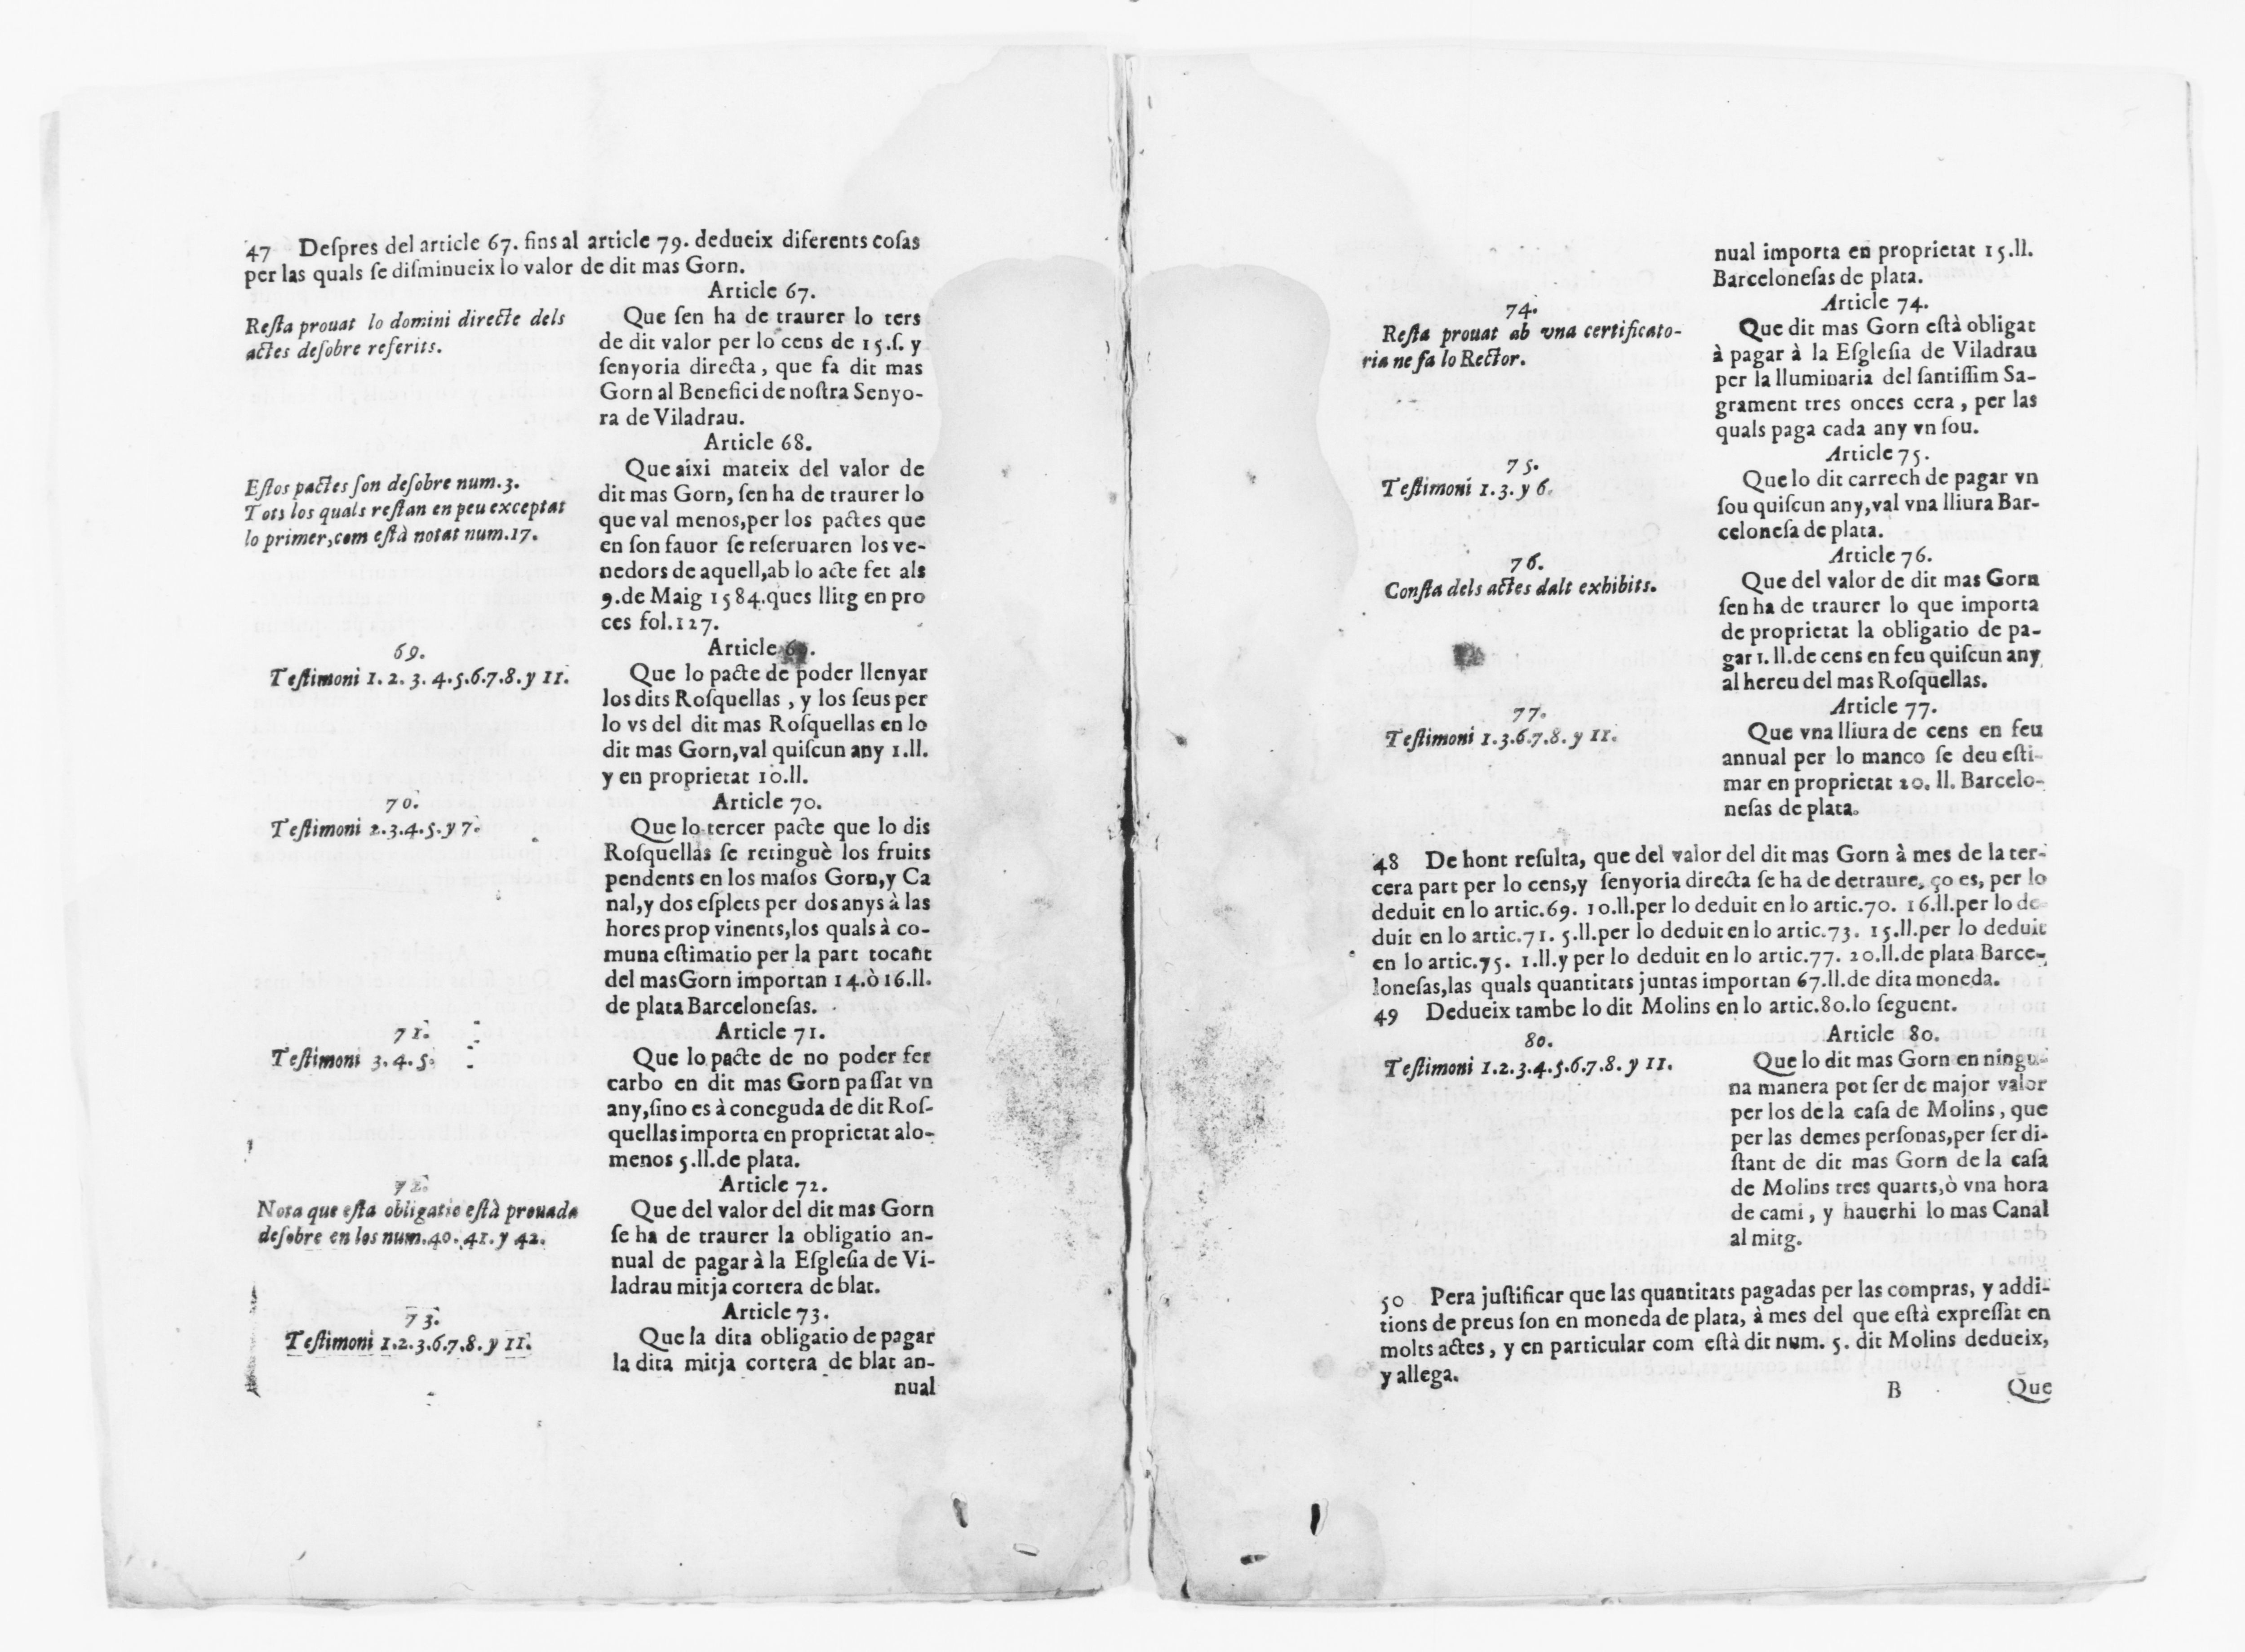 47 Deſpres del article 67. fins al article 79. dedueix diferents coſas
per las quals ſe diſminueix lo valor de dit mas Gorn.
Article 67.
Reſta prouat lo domini directe dels
actes deſobre referits.
Que ſen ha de traurer lo ters
de dit valor per lo cens de 15.ſ. y
ſenyoria directa, que fa dit mas
Gorn al Benefici de noſtra Senyo-
ra de Viladrau.
Article 68.
Eſtos pactes ſon deſobre num.3.
Tots los quals reſtan en peu exceptat
lo primer, com eſtà notat num.17.
Que aixi mateix del valor de
dit mas Gorn, ſen ha de traurer lo
que val menos, per los pactes que
en ſon fauor ſe reſeruaren los ve-
nedors de aquell, ab lo acte fet als
9.de Maig 1584.ques llitg en pro
ces fol.127.
Article 69.
69.
Teſtimoni 1. 2. 3. 4.5.6.7.8. y 11.
Que lo pacte de poder llenyar
los dits Roſquellas, y los ſeus per
lo vs del dit mas Roſquellas en lo
dit mas Gorn, val quiſcun any 1.ll.
y en proprietat 10.ll.
Article 70.
70.
Teſtimoni 2.3.4.5.y 7.
Que lo tercer pacte que lo dis
Roſquellas ſe retinguè los fruits
pendents en los maſos Gorn, y Ca
nal, y dos eſplets per dos anys à las
hores prop vinents, los quals à co-
muna eſtimatio per la part tocant
del mas Gorn importan 14.ò 16.ll.
de plata Barceloneſas.
Article 71.
71.
Teſtimoni 3.4.5.
Que lo pacte de no poder fer
carbo en dit mas Gorn paſſat vn
any, ſino es à coneguda de dit Roſ-
quellas importa en proprietat alo-
menos 5.ll.de plata.
Article 72.
72.
Nota que eſta obligatio eſtà prouada
deſobre en los num.40. 41. y 42.
Que del valor del dit mas Gorn
ſe ha de traurer la obligatio an-
nual de pagar à la Eſgleſia de Vi-
ladrau mitja cortera de blat.
Article 73.
73.
Teſtimoni 1.2.3.6.7.8. y 11.
Que la dita obligatio de pagar
la dita mitja cortera de blat an-
nual
nual importa en proprietat 15.ll.
Barceloneſas de plata.
Article 74.
74.
Reſta prouat ab vna certificato-
ria ne fa lo Rector.
Que dit mas Gorn eſtà obligat
à pagar à la Eſgleſia de Viladrau
per la lluminaria del ſantiſſim Sa-
grament tres onces cera, per las
quals paga cada any vn ſou.
Article 75.
75.
Teſtimoni 1.3. y 6.
Que lo dit carrech de pagar vn
ſou quiſcun any, val vna lliura Bar-
celoneſa de plata.
Article 76.
76.
Conſta dels actes dalt exhibits.
Que del valor de dit mas Gorn
ſen ha de traurer lo que importa
de proprietat la obligatio de pa-
gar 1. ll.de cens en feu quiſcun any
al hereu del mas Roſquellas.
Article 77.
77.
Teſtimoni 1.3.6.7.8. y 11.
Que vna lliura de cens en feu
annual per lo manco ſe deu eſti-
mar en proprietat 20. ll. Barcelo-
neſas de plata.
48 De hont reſulta, que del valor del dit mas Gorn à mes de la ter-
cera part per lo cens, y ſenyoria directa ſe ha de detraure, ço es, per lo
deduit en lo artic.69. 10.ll.per lo deduit en lo artic.70. 16.ll.per lo de
duit en lo artic.71. 5.ll.per lo deduit en lo artic.73. 15.ll.per lo deduit
en lo artic.75. 1.ll.y per lo deduit en lo artic.77. 20.ll.de plata Barce-
loneſas, las quals quantitats juntas importan 67.ll.de dita moneda.
49 Dedueix tambe lo dit Molins en lo artic.80.lo ſeguent.
Article 80.
80.
Teſtimoni 1.2.3.4.5.6.7.8. y 11.
Que lo dit mas Gorn en ningu-
na manera pot ſer de major valor
per los de la caſa de Molins, que
per las demes perſonas, per ſer di-
ſtant de dit mas Gorn de la caſa
de Molins tres quarts, ò vna hora
de cami, y hauerhi lo mas Canal
al mitg.
50 Pera juſtificar que las quantitats pagadas per las compras, y addi-
tions de preus ſon en moneda de plata, à mes del que eſtà expreſſat en
molts actes, y en particular com eſtà dit num. 5. dit Molins dedueix,
y allega.
B Que